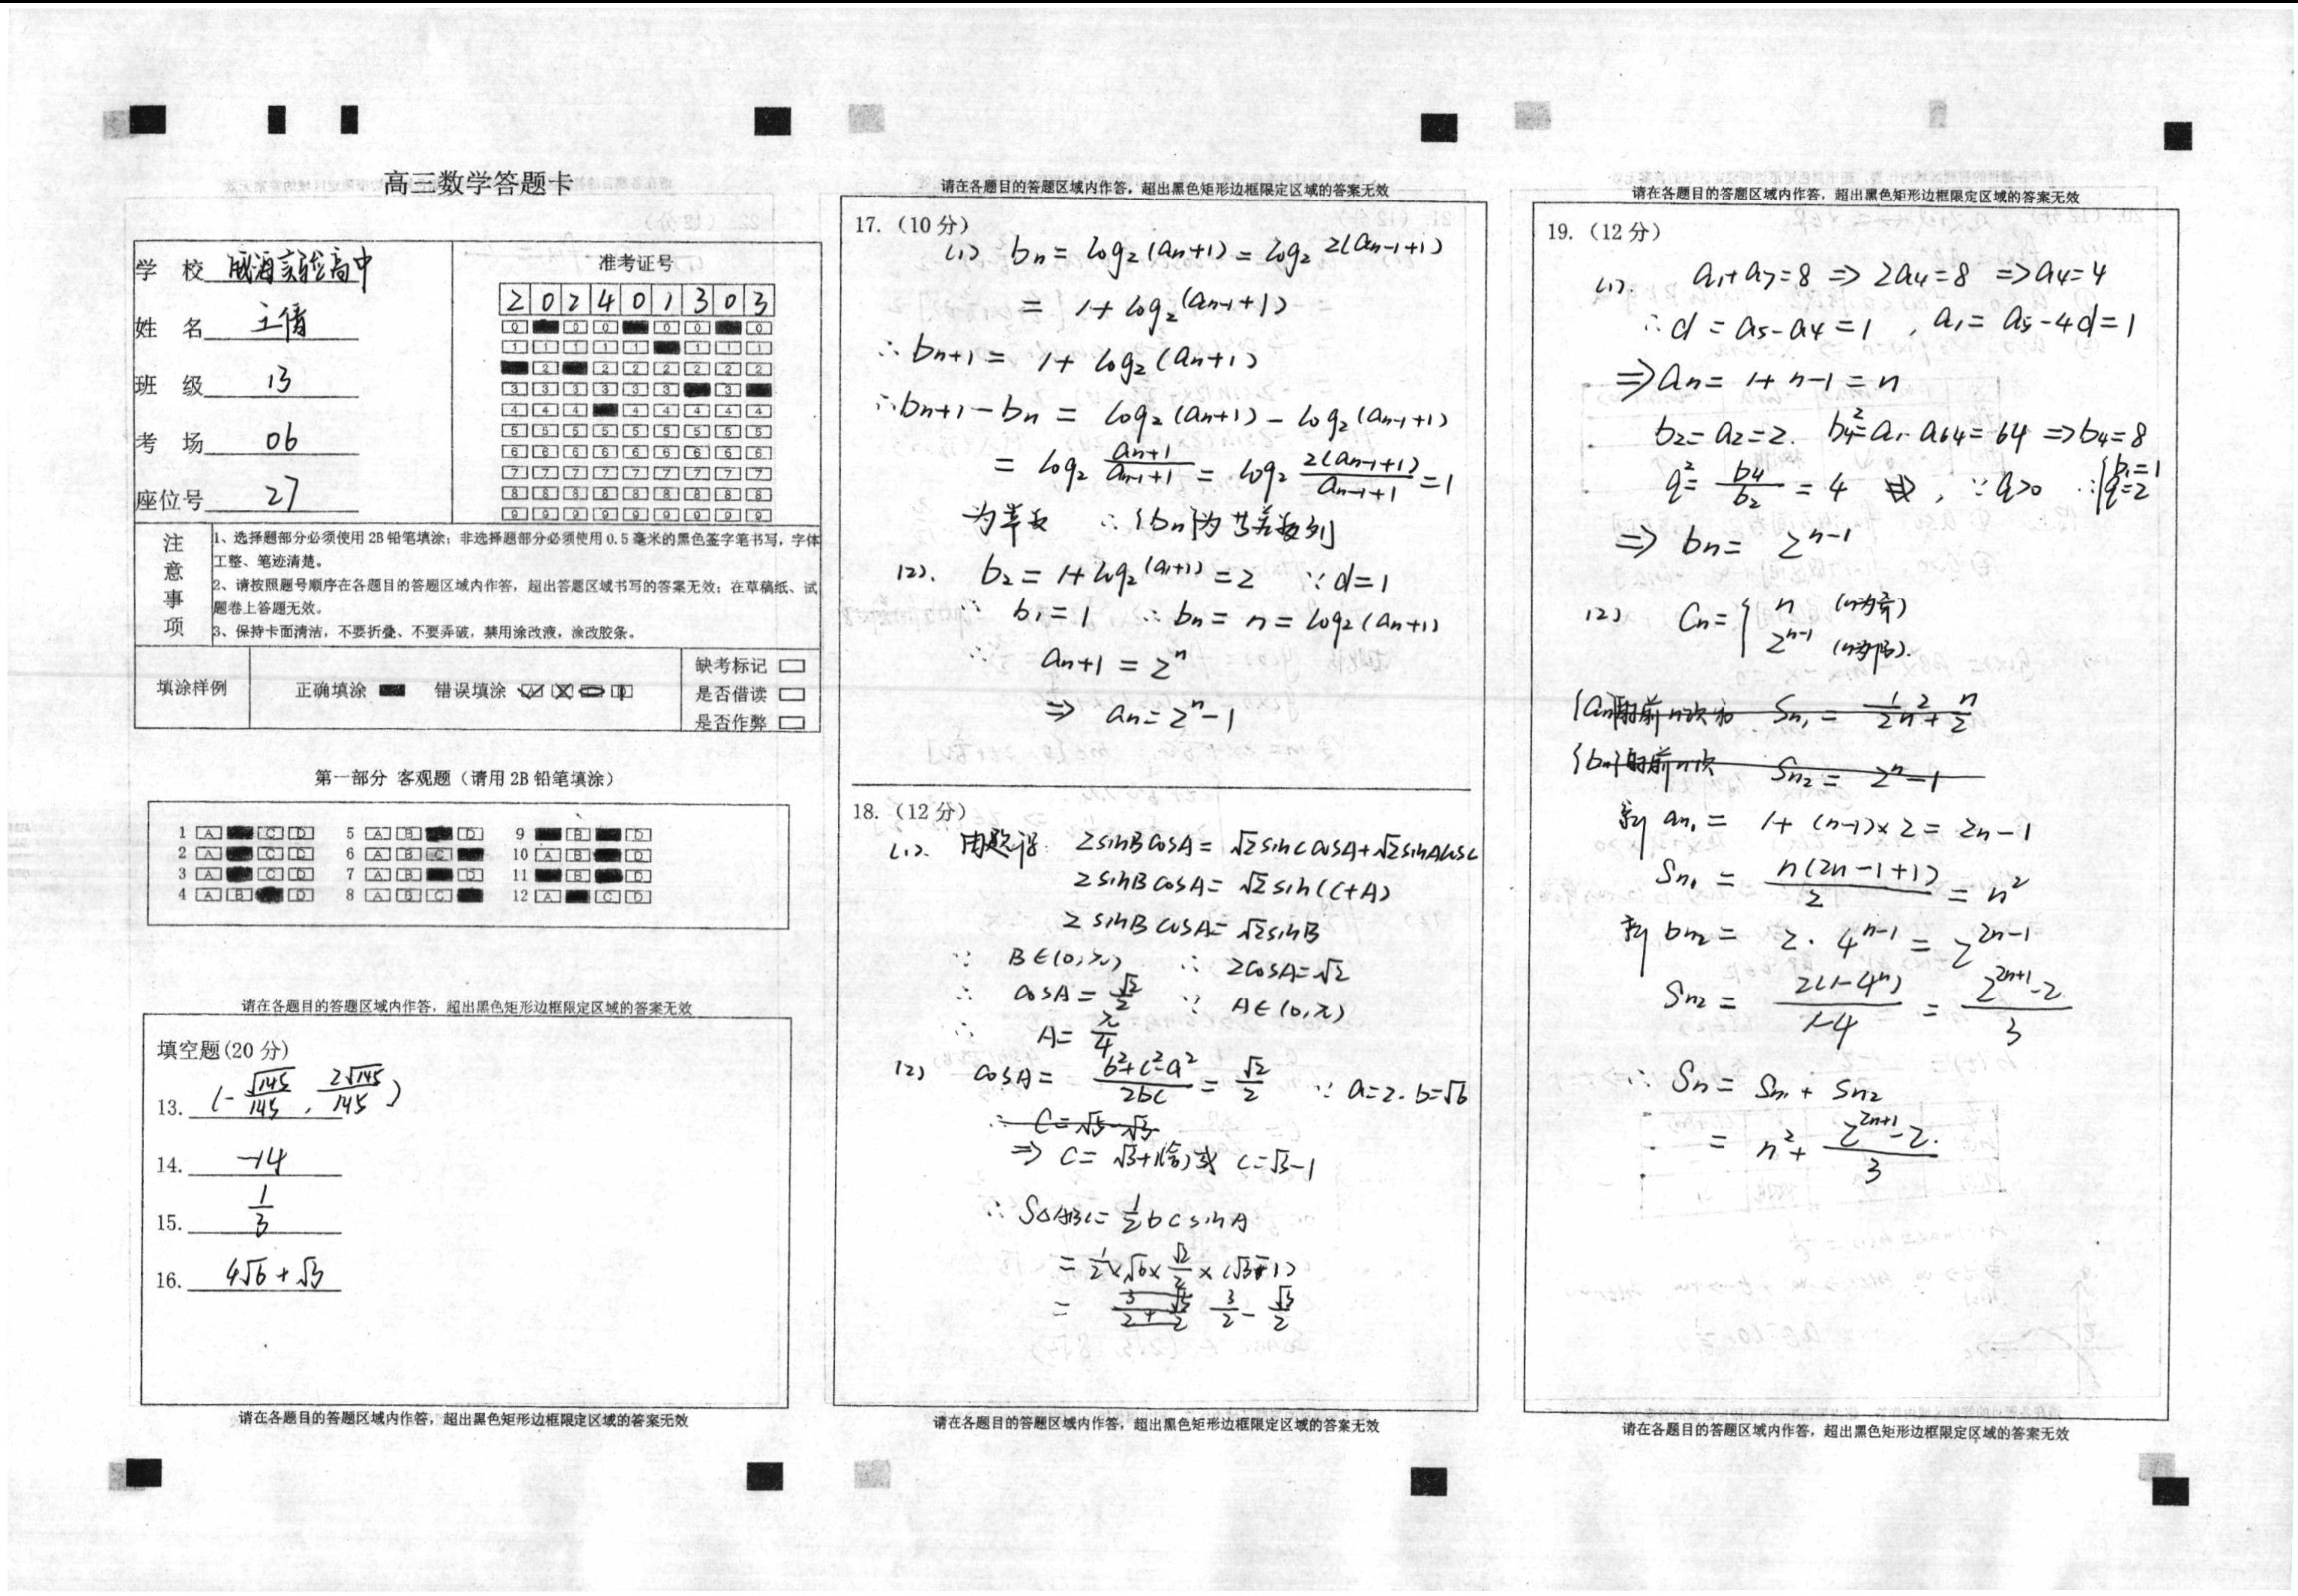 高三数学答题卡
学 校 威海实验高中
姓 名 王倩
班 级 13
考 场 06
座位号 27
准考证号
2 0 2 4 0 1 3 0 3
注意事项
1、选择题部分必须使用 2B 铅笔填涂；非选择题部分必须使用 0.5 毫米的黑色签字笔书写，字体
工整、笔迹清楚。
2、请按照题号顺序在各题目的答题区域内作答，超出答题区域书写的答案无效；在草稿纸、试
题卷上答题无效。
3、保持卡面清洁，不要折叠、不要弄破，禁用涂改液，涂改胶条。
填涂样例 正确填涂 错误填涂
缺考标记
是否借读
是否作弊
第一部分 客观题（请用 2B 铅笔填涂）
1 A C D 5 A B D 9 B D
2 A C D 6 A B C 10 A B D
3 A C D 7 A B D 11 B D
4 A B D 8 A B C 12 A C D
请在各题目的答题区域内作答，超出黑色矩形边框限定区域的答案无效
填空题(20 分)
13. (-√145/145, 2√145/145)
14. -14
15. 1/3
16. 4√6+√3
请在各题目的答题区域内作答，超出黑色矩形边框限定区域的答案无效
请在各题目的答题区域内作答，超出黑色矩形边框限定区域的答案无效
17.（10 分）
(1) bn = log₂(an+1) = log₂ 2(an-1+1)
= 1+ log₂(an-1+1)
∴ bn+1 = 1+ log₂(an+1)
∴ bn+1 - bn = log₂(an+1) - log₂(an-1+1)
= log₂ (an+1)/(an-1+1) = log₂ 2(an-1+1)/(an-1+1) = 1
为常数 ∴ {bn}为等差数列
(2). b₂ = 1+log₂(a₁+1) = 2 ∵ d=1
∴ b₁=1 ∴ bn = n = log₂(an+1)
∴ an+1 = 2ⁿ
⇒ an = 2ⁿ-1
18.（12 分）
(1). 由题得: 2sinBcosA = √2sinCcosA+√2sinAcosC
2sinBcosA = √2sin(C+A)
2sinBcosA = √2sinB
∵ B∈(0,π) ∴ 2cosA=√2
∴ cosA = √2/2 ∵ A∈(0,π)
∴ A = π/4
(2) cosA = (b²+c²-a²)/2bc = √2/2 ∵ a=2. b=√6
∴ C=√5-√3
⇒ C= √3+1(舍)或 C=√3-1
∴ S△ABC = ½bcsinA
= ½×√6×√2/2×(√3-1)
= 3/2 - √3/2
请在各题目的答题区域内作答，超出黑色矩形边框限定区域的答案无效
请在各题目的答题区域内作答，超出黑色矩形边框限定区域的答案无效
19.（12 分）
(1). a₁+a₇=8 ⇒ 2a₄=8 ⇒ a₄=4
∴ d = a₅-a₄=1 , a₁= a₅-4d=1
⇒ an = 1+n-1 = n
b₂=a₂=2. b₄²=a₁·a₆₄=64 ⇒ b₄=8
q²= b₄/b₂ = 4 , ∵ q>0 ∴ {b₁=1 q=2
⇒ bn = 2ⁿ⁻¹
(2) Cn = { n (n为奇)
2ⁿ⁻¹ (n为偶).
{an}的前n项和 Sn₁ = ½n²+n/2
{bn}的前n项 Sn₂ = 2ⁿ-1
an₁ = 1+(n-1)×2 = 2n-1
Sn₁ = n(2n-1+1)/2 = n²
bn₂ = 2·4ⁿ⁻¹ = 2²ⁿ⁻¹
Sn₂ = 2(1-4ⁿ)/(1-4) = (2²ⁿ⁺¹-2)/3
∴ Sn = Sn₁+Sn₂
= n²+ (2²ⁿ⁺¹-2)/3.
请在各题目的答题区域内作答，超出黑色矩形边框限定区域的答案无效